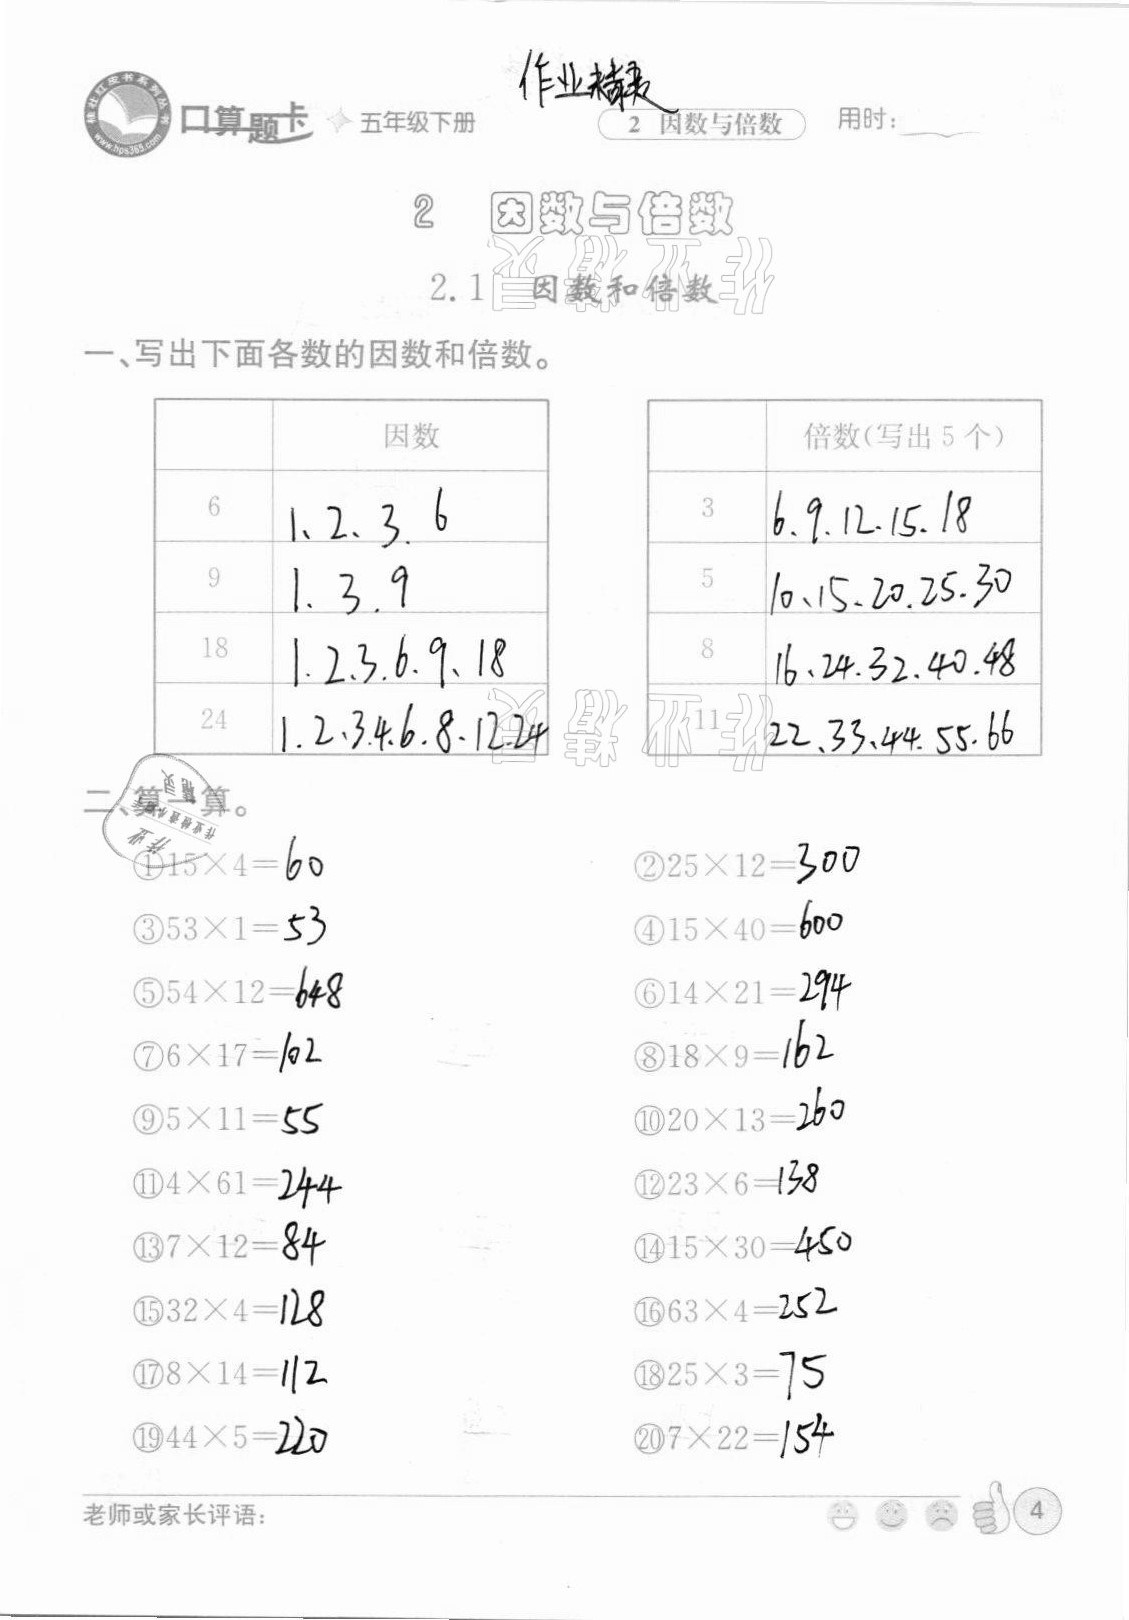 作业精灵
桂壮红皮书系列丛书
www.hps365.com
口算题卡 五年级下册 2 因数与倍数 用时:
2 因数与倍数
作业精灵
2.1 因数和倍数
一、写出下面各数的因数和倍数。
因数
6 1、2、3.6
9 1.3.9
18 1.2.3.6.9、18
24 1.2、3.4.6.8.12.24
倍数(写出5个)
3 6.9.12.15.18
5 10、15.20.25.30
8 16、24.32.40.48
11 22、33、44.55.66
作业精灵
二、算一算。
作业精灵
①15×4=60 ②25×12=300
③53×1=53 ④15×40=600
⑤54×12=648 ⑥14×21=294
⑦6×17=102 ⑧18×9=162
⑨5×11=55 ⑩20×13=260
⑪4×61=244 ⑫23×6=138
⑬7×12=84 ⑭15×30=450
⑮32×4=128 ⑯63×4=252
⑰8×14=112 ⑱25×3=75
⑲44×5=220 ⑳7×22=154
老师或家长评语: 4